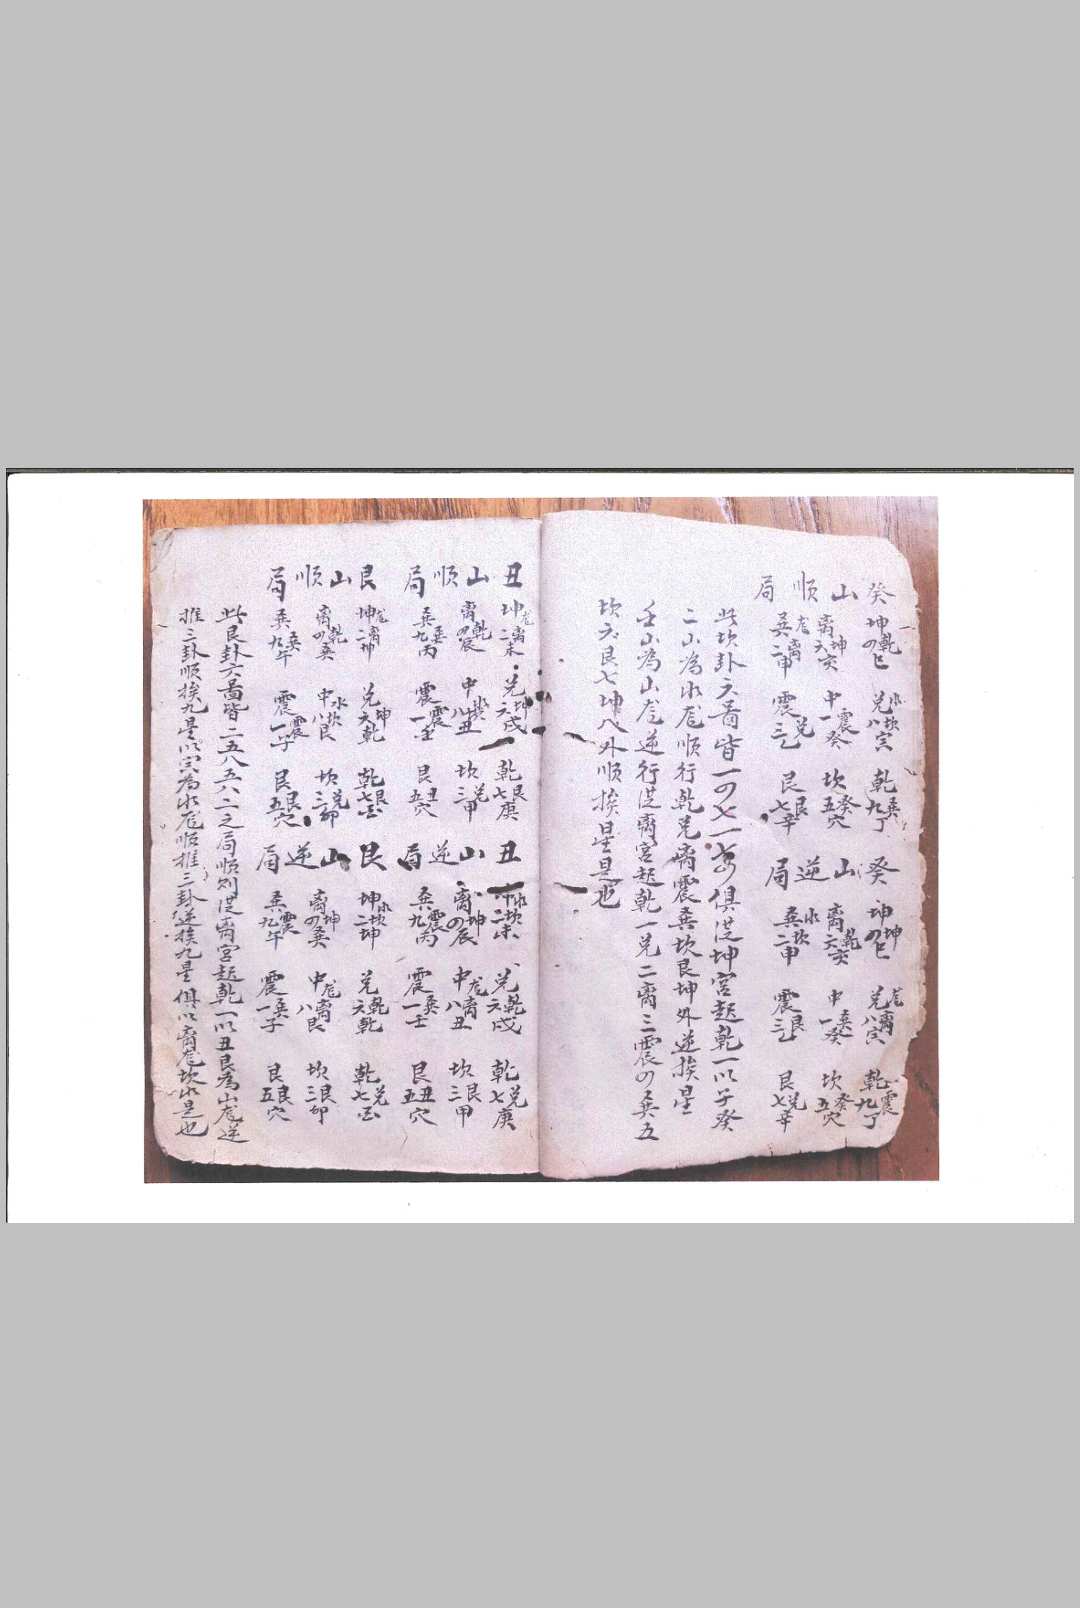 癸山順局
坤乾四巳 兌水坎八寅 乾巽九丁
離坤六亥 中震一癸 坎癸五穴
巽尨離二申 震兌三乙 艮艮七辛
癸山逆局
坤坤四巳 兌尨離八寅 乾震九丁
離乾六亥 中巽一癸 坎癸五穴
巽水坎二申 震艮三乙 艮兌七辛
此坎卦六啚皆一四七一七四俱從坤宮起乾一以子癸
二山為水尨順行乾兌離震巽坎艮坤外逆挨星
壬山為山尨逆行從离宮起乾一兌二离三震四巽五
坎六艮七坤八外順挨星是也
丑山順局
坤尨離二未 兌坤六戌 乾艮七庚
离乾四辰 中水坎八丑 坎兌三甲
巽巽九丙 震震一壬 艮丑五穴
丑山逆局
水坎二未 兌乾六戌 乾兌七庚
离坤四辰 中尨離八丑 坎艮三甲
巽震九丙 震巽一壬 艮丑五穴
艮山順局
坤尨離二坤 兌坤六乾 乾艮七酉
离乾四巽 中水坎八艮 坎兌三卯
巽巽九午 震震一子 艮艮五穴
艮山逆局
坤水坎二坤 兌乾六乾 乾兌七酉
离坤四巽 中尨離八艮 坎艮三卯
巽震九午 震巽一子 艮艮五穴
此艮卦六啚皆二五八五八二之局順列從离宮起乾一以丑艮為山尨逆
推三卦順挨九星以寅為水尨順推三卦逆挨九星俱以离尨坎水是也